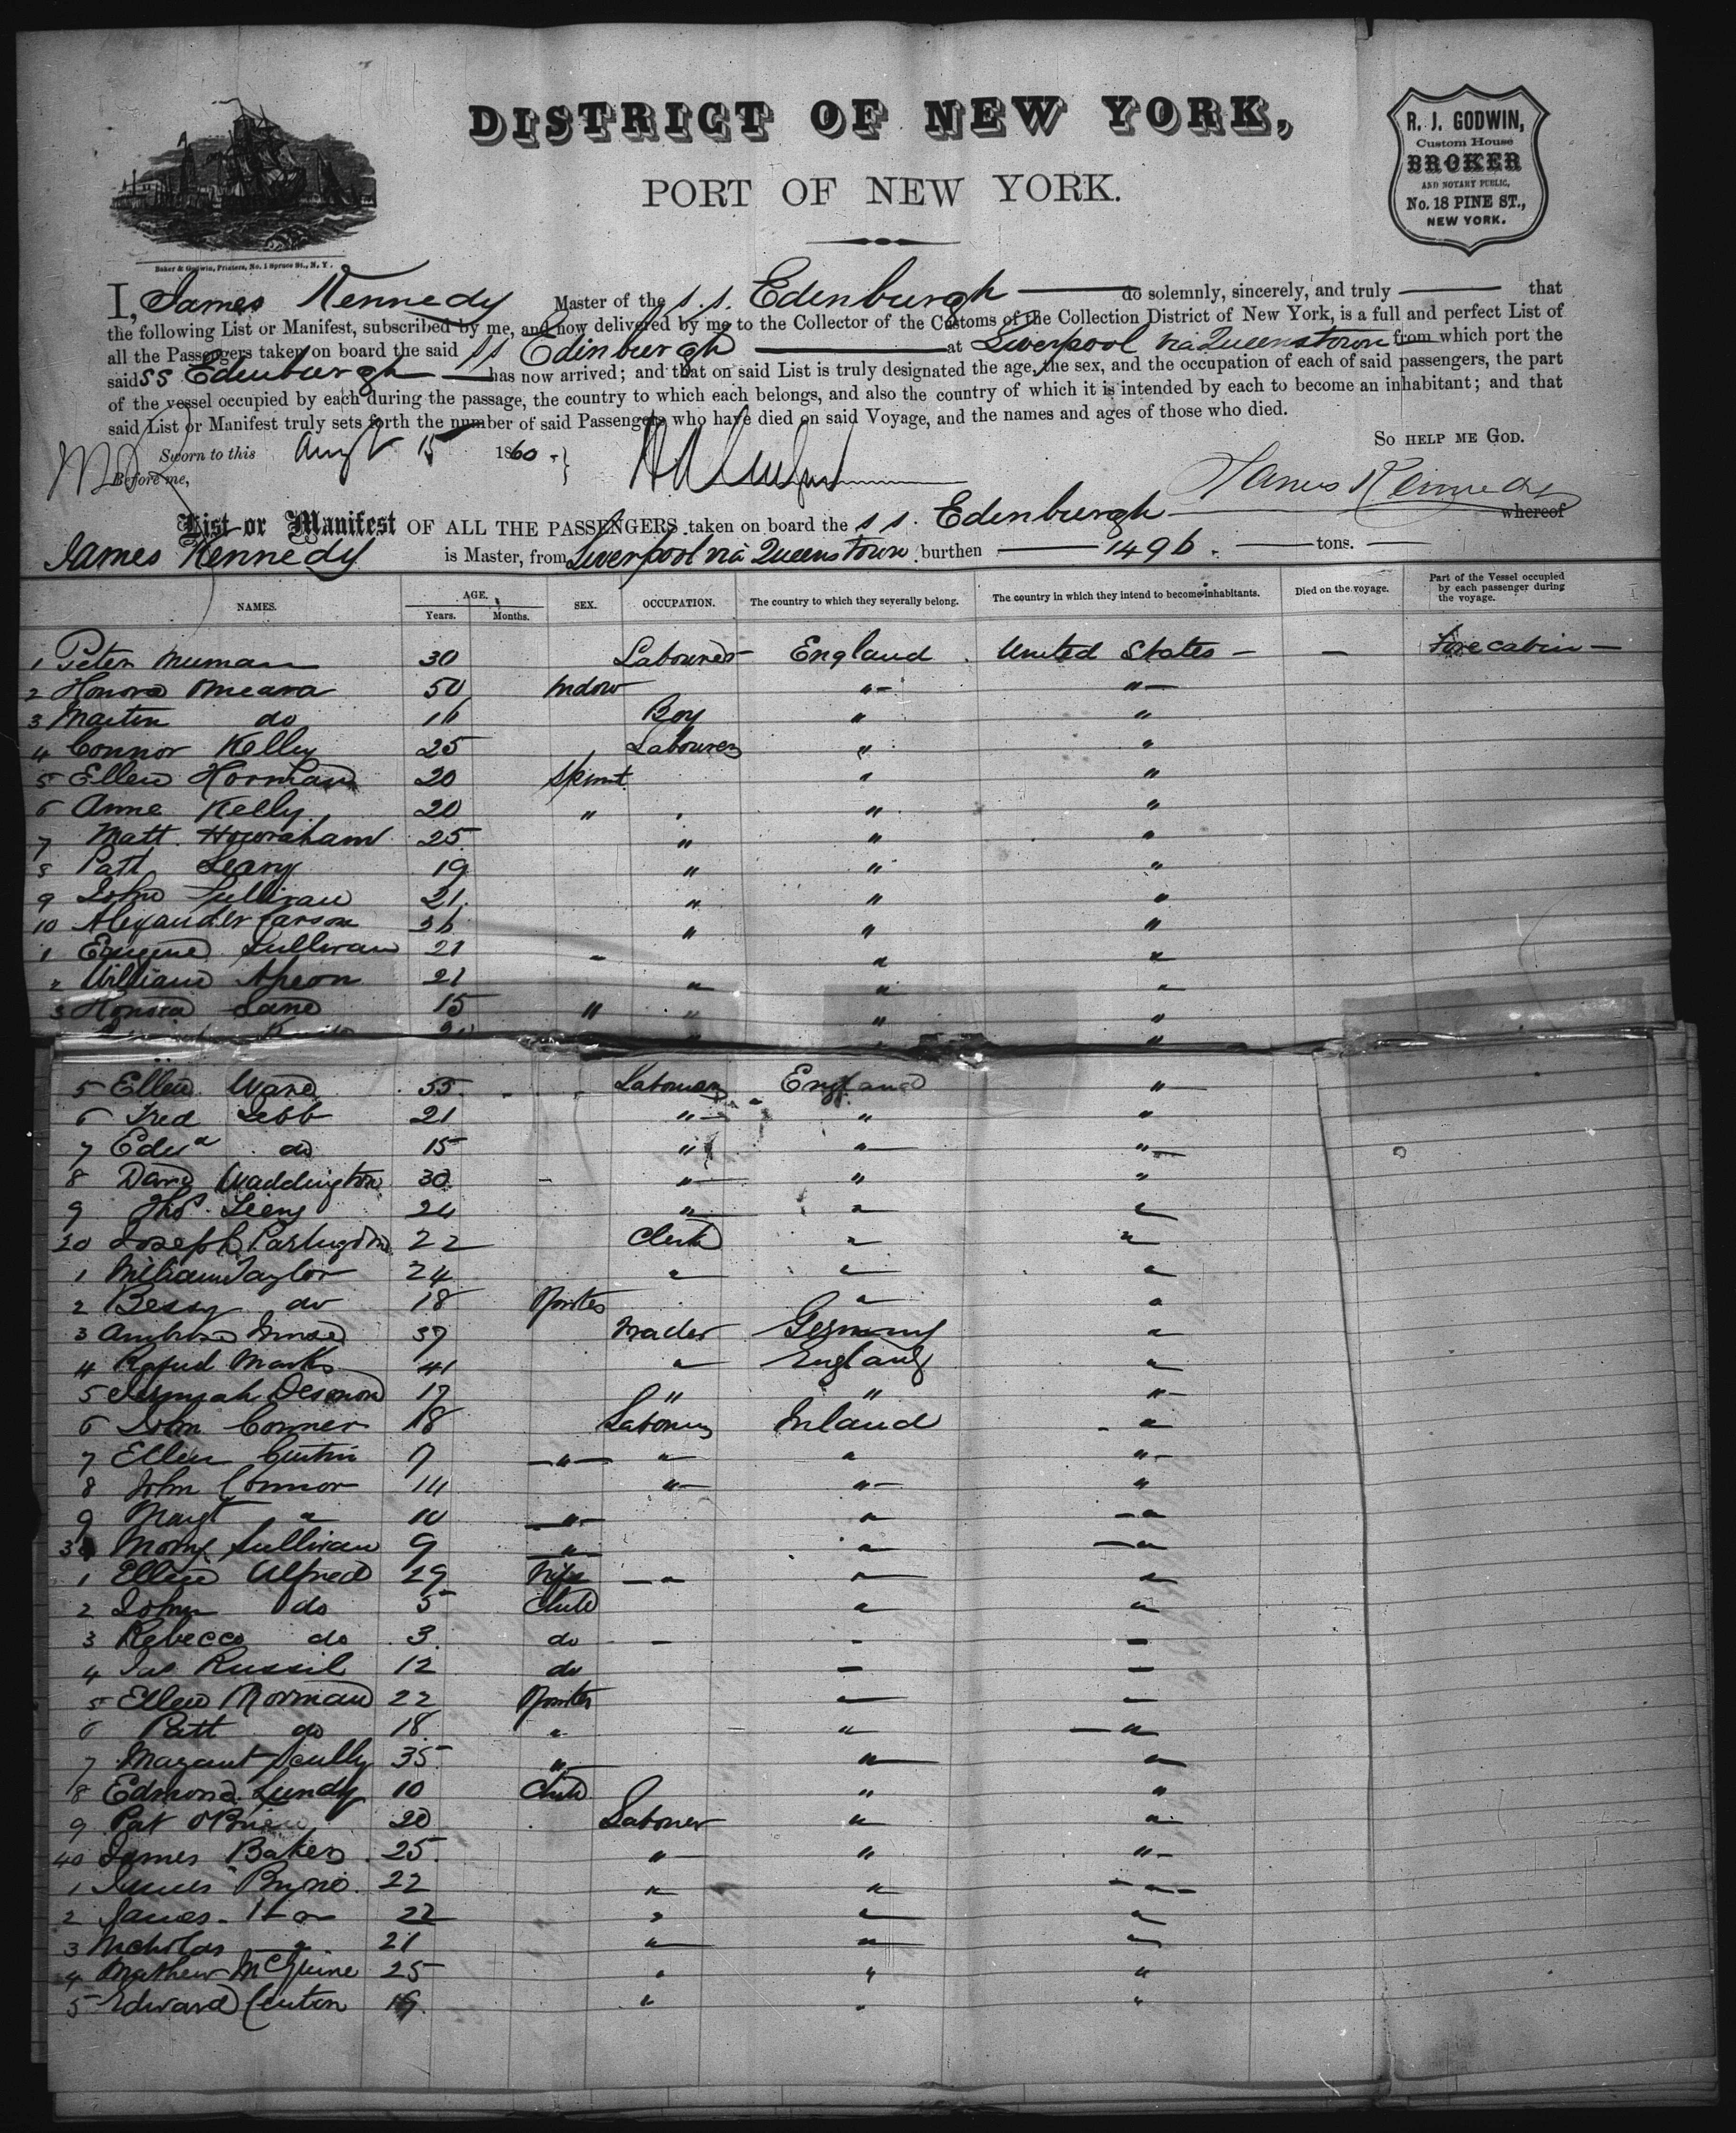 DISTRICT OF NEW YORK,
PORT OF NEW YORK.
R. J. GODWIN,
Custom House
BROKER
AND NOTARY PUBLIC,
No. 18 PINE ST.,
NEW YORK.
Baker & Godwin, Printers, No. 1 Spruce St., N. Y.
I, James Kennedy Master of the s.s. Edenburgh do solemnly, sincerely, and truly that
the following List or Manifest, subscribed by me, and now delivered by me to the Collector of the Customs of the Collection District of New York, is a full and perfect List of
all the Passengers taken on board the said ss Edinburgh at Liverpool via Queenstown from which port the
said SS Edenburgh has now arrived; and that on said List is truly designated the age, the sex, and the occupation of each of said passengers, the part
of the vessel occupied by each during the passage, the country to which each belongs, and also the country of which it is intended by each to become an inhabitant; and that
said List or Manifest truly sets forth the number of said Passengers who have died on said Voyage, and the names and ages of those who died.
SO HELP ME GOD.
Sworn to this Augt 15 1860
Before me,
James Kennedy
List or Manifest OF ALL THE PASSENGERS taken on board the s s. Edenburgh whereof
James Kennedy is Master, from Liverpool via Queenstown. burthen 1496. tons.
NAMES. AGE. Years. Months. SEX. OCCUPATION. The country to which they severally belong. The country in which they intend to become inhabitants. Died on the voyage. Part of the Vessel occupied by each passenger during the voyage.
1 Peter 30 Labourer England United States — — Fore cabin —
2 Honora Omeara 50 " "
3 Martin do 16 Boy " "
4 Connor Kelly 25 Labourer " "
5 Ellen 20 " "
6 Anne Kelly 20 " " "
7 Matt. 25 " " "
8 Patt Leary 19 " " "
9 John Sullivan 21 " " "
10 Alexander Carson 36 " " "
1 Eugene Sullivan 21 " " "
William 21 " " "
3 Honora Lane 15 " " " "
5 Ellen Ward 55 Labourer England "
6 Fred Lebb 21 " " "
7 Edwd do 15 " " "
8 David Waddington 30 " " "
9 Thos. 24 " " "
20 Joseph 22 Clerk " "
1 William Taylor 24 " " "
2 Bessy do 18 " "
3 37 Trader Germany "
4 Marks 41 " England "
5 Jeremiah Desmond 17 " " "
6 John Conner 18 Labourer Ireland "
7 Ellen 7 " " " "
8 John Connor 14 " " "
9 Margt " 10 " " "
30 Sullivan 9 " " "
1 Ellen Alfred 29 Wife " " "
2 John do 5 Child " "
3 Rebecca do 3 do - - -
4 Jas Russil 12 do - -
5 Ellen Norman 22 - -
6 Patt do 18 " " "
7 Margaret Scully 35 " " "
8 Edmond Lundy 10 Child " "
9 Pat O'Brien 20 Laborer " "
40 James Baker 25 " " "
1 James Byrne 22 " " "
2 James 22 " " "
3 Nicholas " 21 " " "
4 Mathew McGuire 25 " " "
5 Edward 19 " " "